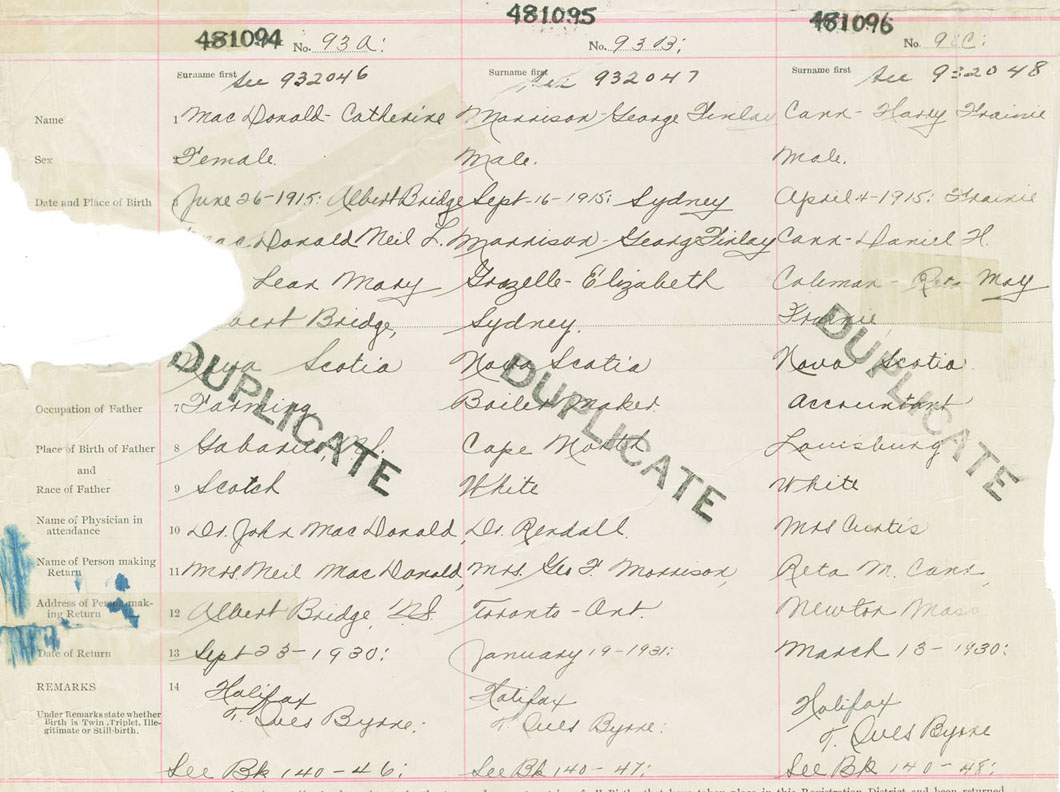 481094 No. 93A: 481095 No. 93B; 481096 No. 93C:
Surname first See 932046 Surname first See 932047 Surname first See 932048
Name 1 MacDonald - Catherine Morrison - George Finlay Cann - Harry Trainie
Sex Female. Male. Male.
Date and Place of Birth 3 June 26-1915: Albert Bridge Sept-16-1915: Sydney April 4-1915: Trainie
MacDonald Neil L. Morrison - Georg Finlay Cann - Daniel H.
Lean Mary Grozelle - Elizabeth Coleman - Reta May
bert Bridge, Sydney. Trainie
Nova Scotia Nova Scotia Nova Scotia
Occupation of Father 7 Farming Boiler Maker. Accountant
Place of Birth of Father 8 Gabarus, N.S. Cape North Louisburg
and
Race of Father 9 Scotch White White
Name of Physician in attendance 10 Dr. John MacDonald, Dr. Rendall. Mrs Curtis
Name of Person making Return 11 Mrs. Neil MacDonald, Mrs. Geo F. Morrison, Reta M. Cann,
Address of Person making Return 12 Albert Bridge, N.S. Toronto - Ont. Newton Mass
Date of Return 13 Sept 23-1930: January 19-1931: March 13-1930:
REMARKS 14 Halifax Halifax Halifax
Under Remarks state whether Birth is Twin, Triplet, Illegitimate or Still-birth. Byrne: Byrne: Byrne
See Bk 140-46: See Bk 140-47: See Bk 140-48:
DUPLICATE DUPLICATE DUPLICATE